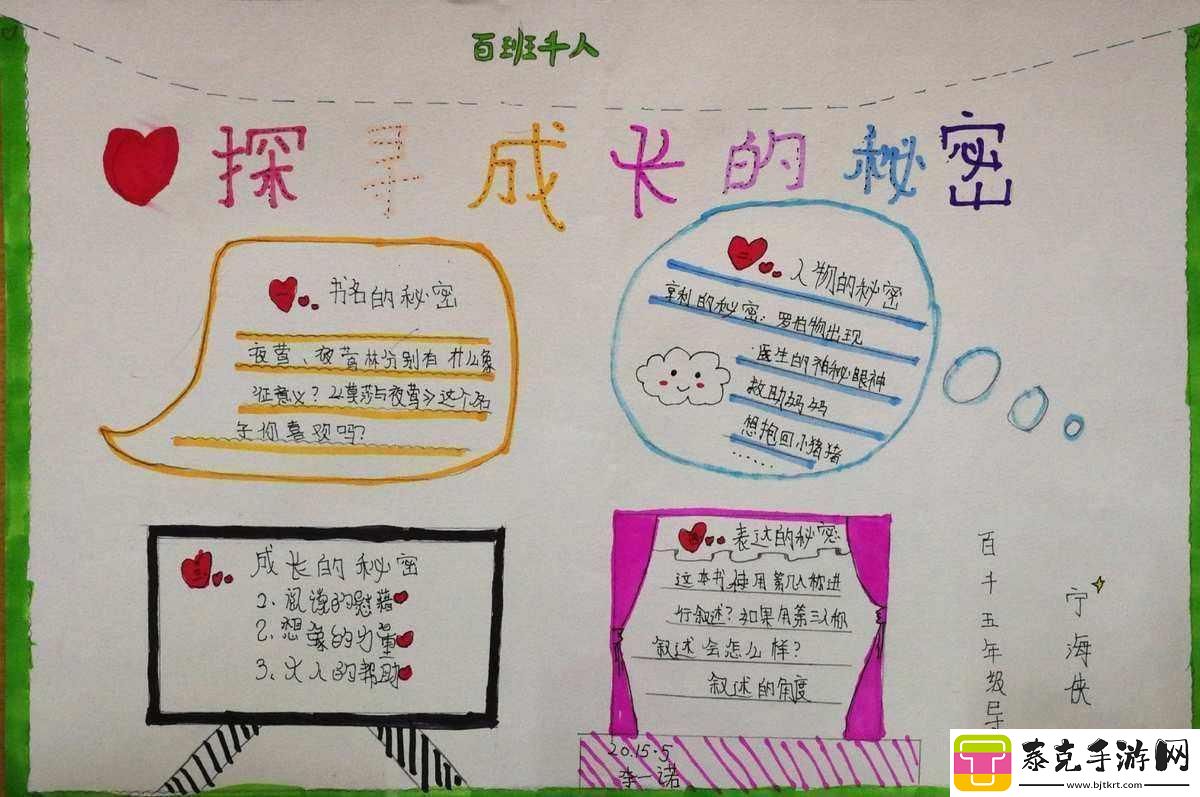 百班千人
探寻成长的秘密
一 书名的秘密
夜莺、夜莺林分别有什么象
征意义?《莫莎与夜莺》这个名
字你喜欢吗?
二 人物的秘密
亨利的秘密:罗伯物出现
医生的神秘眼神
救助妈妈
想抱回小猪猪
……
三 成长的秘密
1、阅读的慰藉
2、想象的力量
3、大人的帮助
四 表达的秘密
这本书使用第几人称进
行叙述?如果用第三人称
叙述会怎么样?
叙述的角度
2015.5
李一诺
百千五年级导
宁海侠
泰克手游网
www.bjtkrt.com